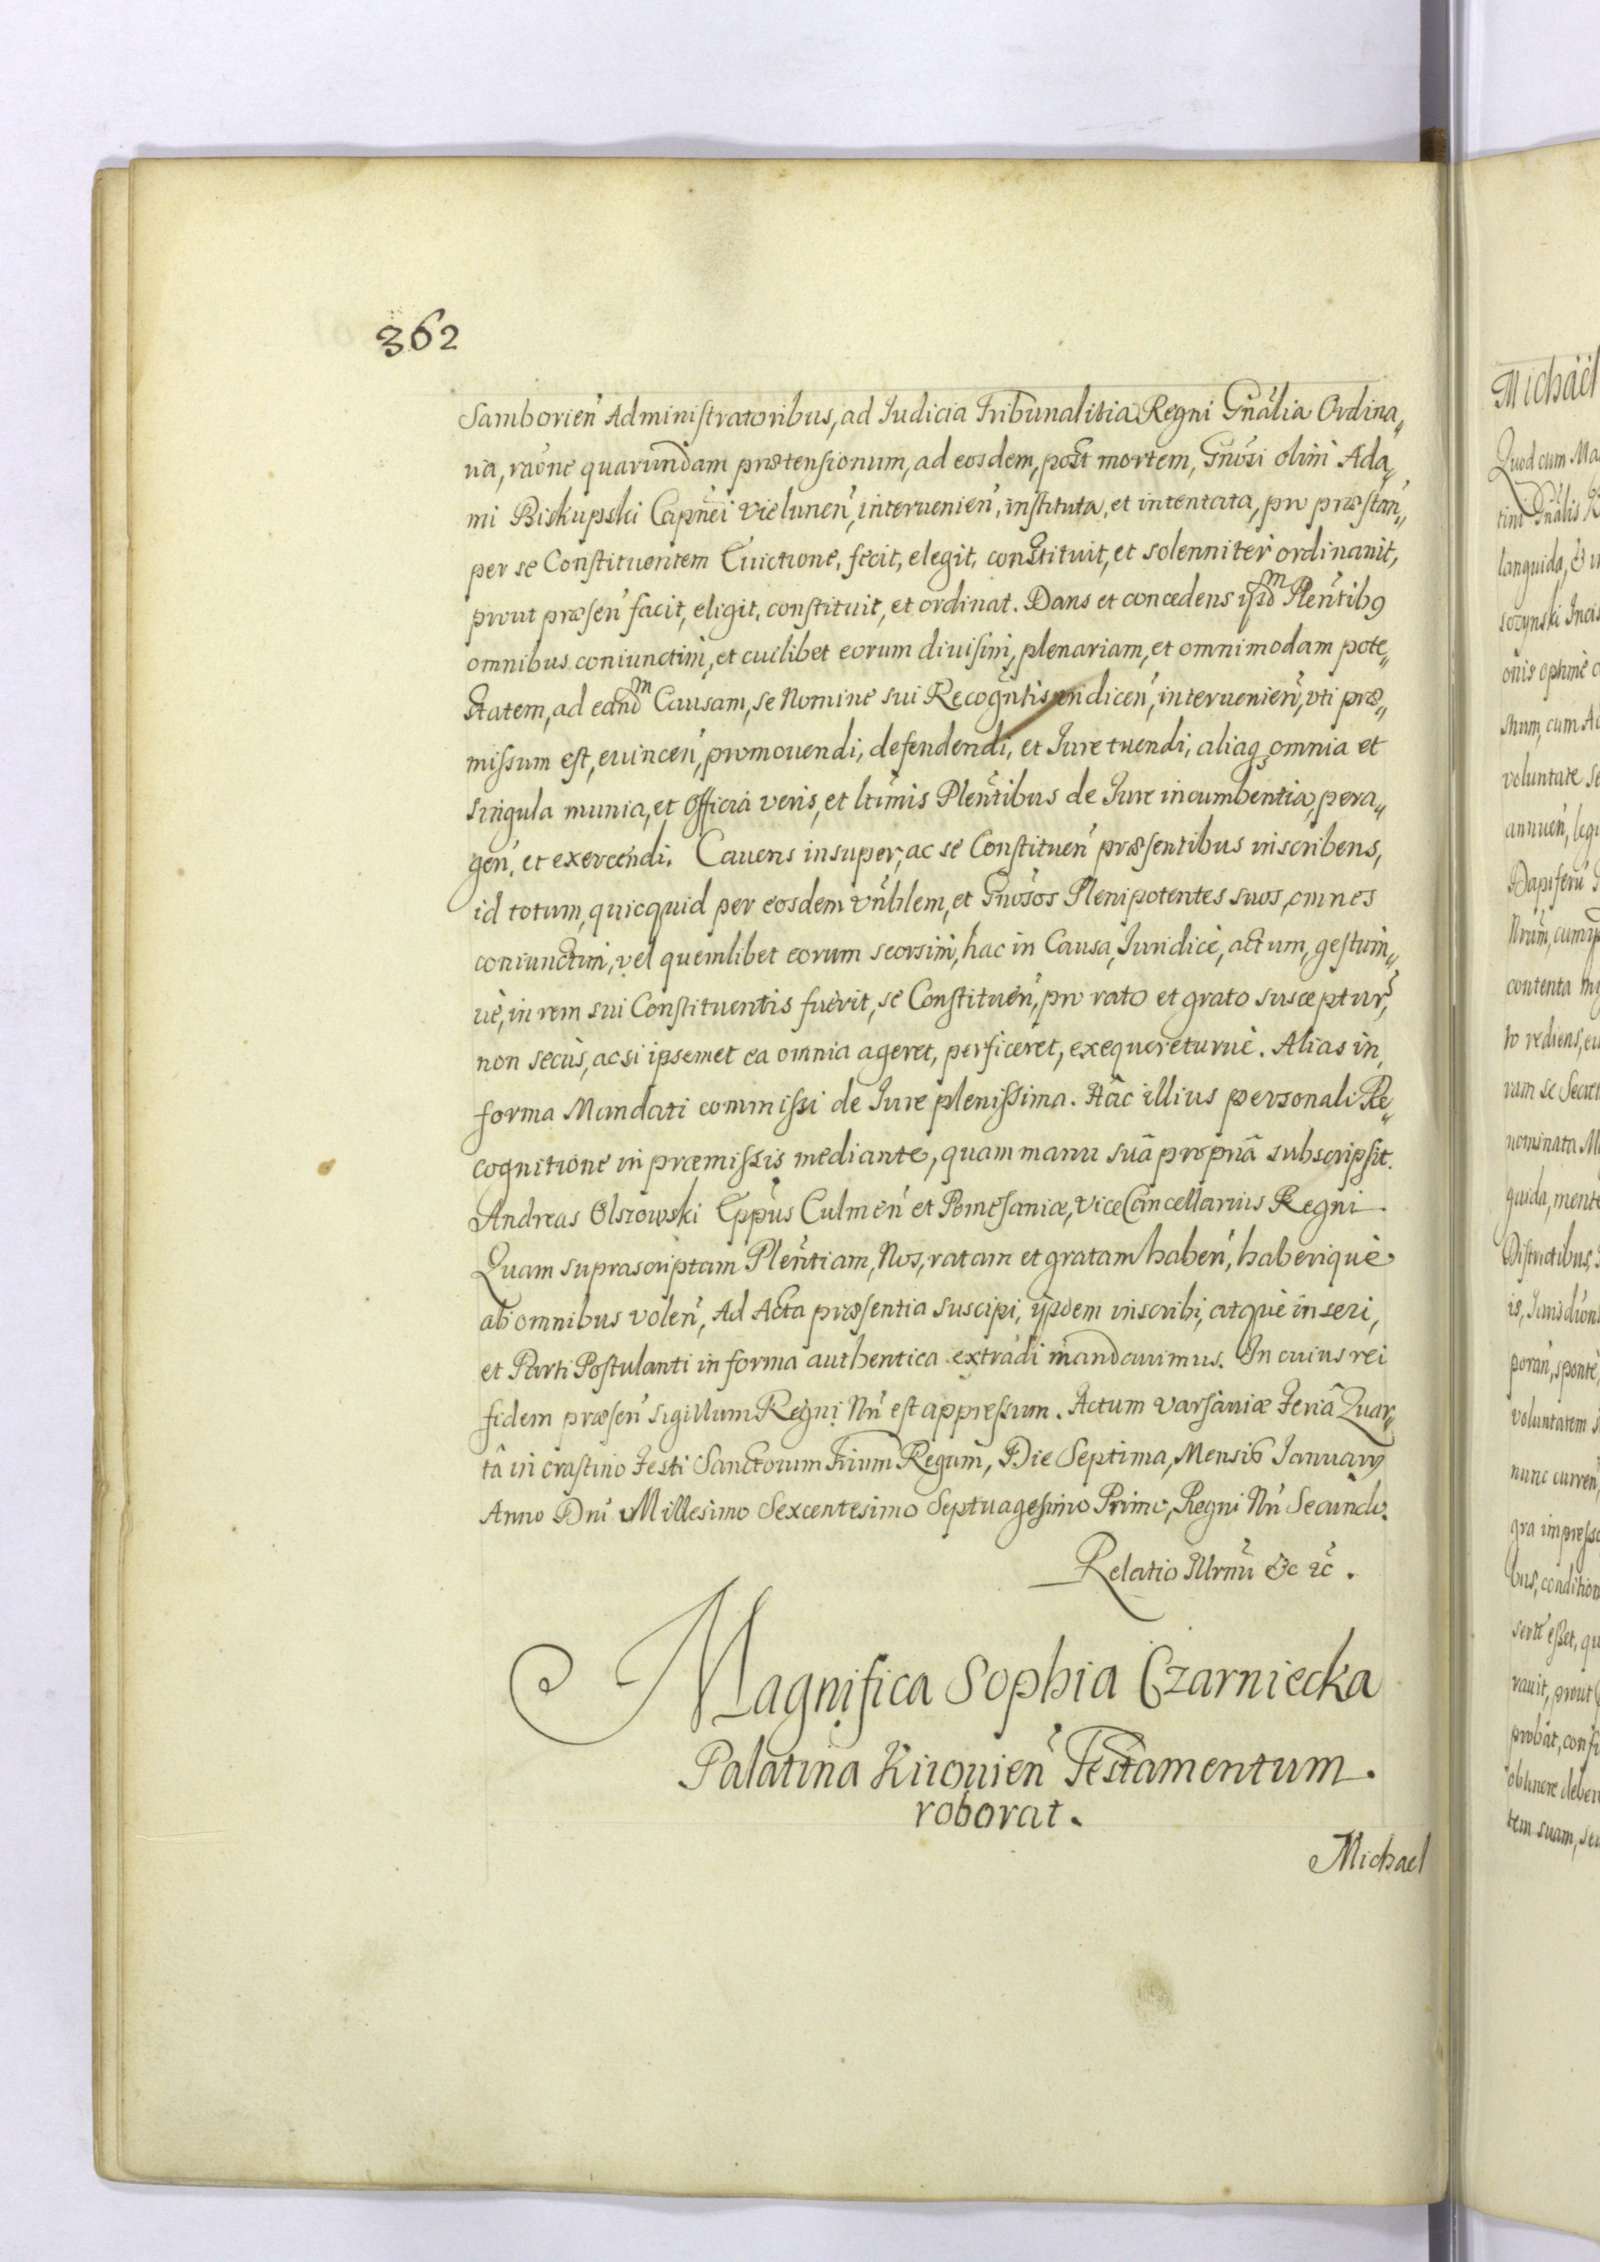 362
Samborien̄ Administratoribus, ad Judicia Tribunalitia Regni Gn̄alia Ordina„
ria, rāone quarundam prætensionum, ad eosdem, post mortem, Gn̄osi olim Ada„
mi Biskupski Capn̄ei Vielunen̄, intervenien̄, instituta, et intentata, pro præstan̄„
per se Constituentem Evictione, fecit, elegit, constituit, et solenniter ordinavit,
prout præsen̄ facit, eligit, constituit, et ordinat. Dans et concedens ijsdᵐ Plen̄tibꝰ
omnibus coniunctim, et cuilibet eorum divisim, plenariam, et omnimodam pote„
statem, ad eandᵐ Causam, se Nomine sui Recogn̄tis indicen̄, intervenien̄, vti præ„
missum est, evincen̄, promovendi, defendendi, et Iure tuendi, aliaq₃ omnia et
singula munia, et officia veris, et ltīmis Plen̄tibus de Iure incumbentia, pera„
gen̄, et exercendi. Cavens insuper, ac se Constituen̄ præsentibus inscribens,
id totum, quicquid per eosdem Vn̄blem, et Gn̄osos Plenipotentes suos, omnes
coniunctim, vel quemlibet eorum seorsim, hac in Causa, Iuridicè, actum, gestum„
uè, in rem sui Constituentis fuerit, se Constituen̄, pro rato et grato susceptur̄,
non secùs, ac si ipsemet ea omnia ageret, perficeret, exequereturuè. Alias in
forma Mandati commissi de Iure plenissima. Hâc illius personali Re„
cognitione in præmissis mediante, quam manu suâ propriâ subscripsit.
Andreas Olszowski Epp̄us Culmen̄ et Pomesaniæ, ViceCancellarius Regni.
Quam suprascriptam Plen̄tiam, Nos, ratam et gratam haben̄, haberiquè
ab omnibus volen̄, Ad Acta præsentia suscipi, ijsdem inscribi, atquè inseri,
et Parti Postulanti in forma authentica extradi mandavimus. In cuius rei
fidem præsen̄ Sigillum Regni Nr̄i est appressum. Actum Varsaviæ Feriâ Quar„
tâ in crastino Festi Sanctorum Trium Regum, Die Septima, Mensis Januarij
Anno Dn̄i Millesimo Sexcentesimo Septuagesimo Primo, Regni Nr̄i Secundo.
Relatio Illrm̄i &c &c.
Magnifica Sophia Czarniecka
Palatina Kijouien̄ Testamentum
roborat.
Michael
Michaël
Quod cum Ma
languida, & 
sozynski
onis optimè
voluntate se
annuen̄, 
contenta
to rediens, 
nominata
guida, mente
Districtibus,
poran̄, spontè,
voluntatem
nunc curren̄
gra impress
bus, condition
vavit, prout
probat, confi
obtinere deber
tem suam, seu